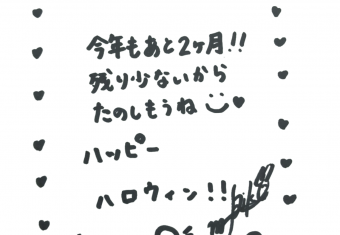 今年もあと2ヶ月!!
残り少ないから
たのしもうね
ハッピー
ハロウィン!!